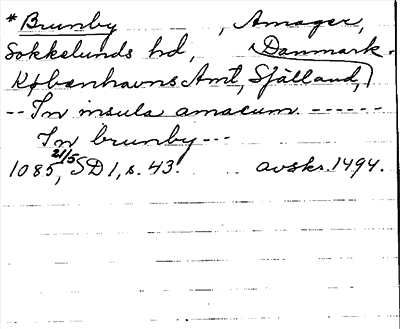 *Brunby, Amager,
Sokkelunds hd, Danmark.
Københavns Amt, Själland,
-- In insula amacum ------
In brunby ---
1085 21/5, SD 1, s. 43. avskr. 1494.